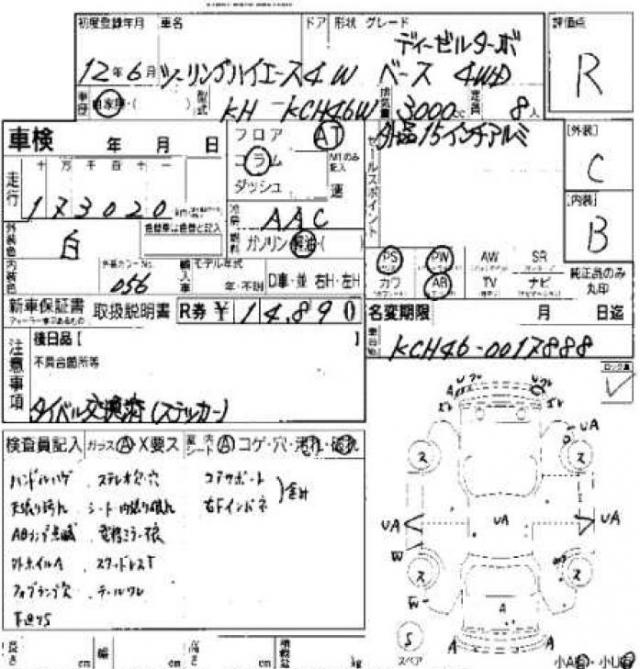 初度登録年月 車名 ドア 形状 グレード 評価点
ディーゼルターボ
12年6月 ツーリングハイエース 4W ベース 4WD R
車歴 自家用・( ) 型式 KH-KCH46W 排気量 3000cc 定員 8人
車検 年 月 日
フロア AT
コラム M1のみ記入
ダッシュ 速
セールスポイント 外品15インチアルミ
[外装] C
[内装] B
走行 十 万 千 百 十 一
173020km
冷房 AAC
燃料 ガソリン・軽油・( )
外装色 白
色替車は色替と記入
内装色 外装カラーNo. 056
輸入車 モデル年式 年・不明 D車・並 右H・左H
PS PW AW SR
カワ AB TV ナビ
純正品のみ丸印
新車保証書 取扱説明書 R券 ¥14,890
名変期限 月 日迄
車台No. KCH46-0017888
注意事項
後日品【 】
不具合箇所等
タイベル交換済(ステッカー)
検査員記入 ガラス A X要ス 内 シート A コゲ・穴・汚れ・破れ
ハンドルハゲ ステレオ欠・穴 コアサポート
天張り汚れ シート・内張り破れ 右Fインパネ
ABランプ点滅 電格ミラー
外ホイルA スタッドレスT
フォグランプ穴 テールワレ
UA
UA UA UA
W
W
A
A A
ス ス
ス ス
S
スペア
長さ cm 幅 cm 高さ cm 積載量 kg
小A・小U